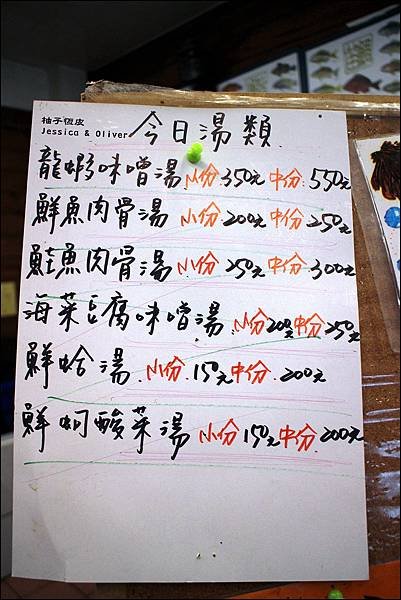 柚子恆皮
Jessica & Oliver
今日湯類
龍蝦味噌湯 小份 350元 中份 550元
鮮魚肉骨湯 小份 200元 中份 250元
鮭魚肉骨湯 小份 250元 中份 300元
海菜豆腐味噌湯 小份 200元 中份 250元
鮮蛤湯 小份 150元 中份 200元
鮮蚵酸菜湯 小份 150元 中份 200元